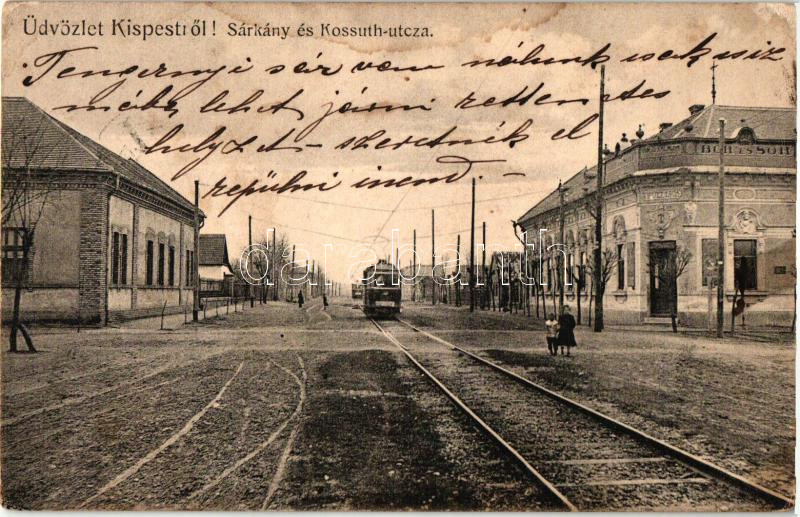 Üdvözlet Kispestről! Sárkány és Kossuth-utcza.
Tengernyi sár van nálunk csak usiz
lehet járni rettenetes
helyzet - szeretnék el
repülni innend.
BOR ÉS SÖR
darabanth.com